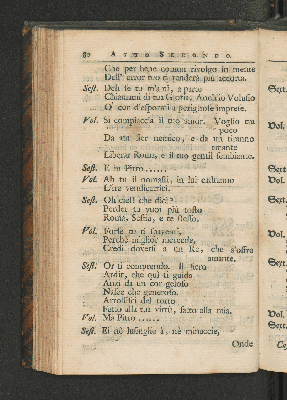 80 ATTO SECONDO.
Che per bene comun rivolgo in mente
Dell' error tuo ti renderà più accorta.
Sest. Deh se tu m'ami, a parte
Chiamami di tua gloria, Auzi
O' con d'esporti a perigliose imprese.
Vol. Si compiaccia il tuo amor. Voglio tra
poco
Da un fier nemico, e da un tiranno
amante
Liberar Roma, e il tuo gentil sembiante.
Sest. E in Pirro......
Vol. Ah tu il nomasti, in lui cadranno
L'ire vendicatrici.
Sest. Oh ciel! che dici?
Perder tu vuoi più tosto
Roma, Sestia, e te stesso.
Vol. Forse tu ti
Perchè miglior mercede,
Credi doverti a un Re, che s'offra
amante.
Sest. Or ti comprendo. Il fiero
Ardir, che qui ti guida
Anzi da un cor geloso
Nasce che generoso.
Arrossisci del torto
Fatto alla tua virtù, fatto alla mia.
Vol. Ma Pirro......
Sest. Ei nè lusinghe à, nè minaccie,
Onde
Sest.
Vol.
Sest.
Vol.
Sest.
Vol.
Sest.